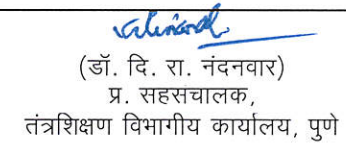 (डॉ. दि. रा. नंदनवार)
प्र. सहसंचालक,
तंत्रशिक्षण विभागीय कार्यालय, पुणे